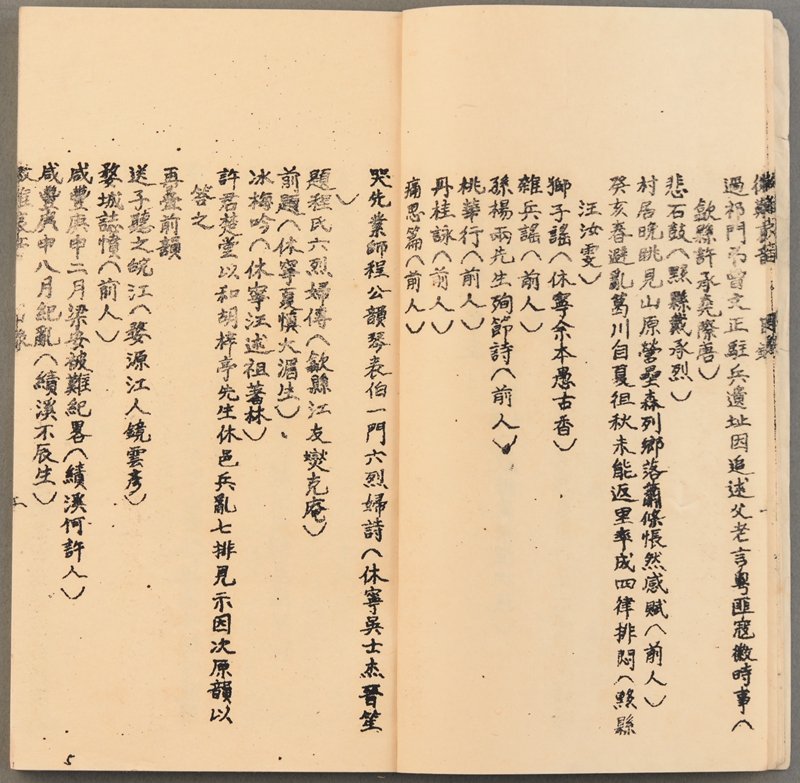 過祁門弔曾文正駐兵遺址因追述父老言粵匪寇徽時事（
歙縣許承堯際唐）
悲石鼓（黟縣戴承烈）
村居晚眺見山原營壘森列鄉落蕭條悵然感賦（前人）
癸亥春避亂葛川自夏徂秋未能返里率成四律排悶（黟縣
汪汝雯）
獅子謠（休寧余本愚古香）
雜兵謠（前人）
孫楊兩先生殉節詩（前人）
桃華行（前人）
丹桂詠（前人）
痛思篇（前人）
哭先業師程公韻琴表伯一門六烈婦詩（休寧吳士杰晉笙
）
題程氏六烈婦傳（歙縣江友燮克庵）
前題（休寧夏慎大湄生）
冰梅吟（休寧汪述祖蓍林）
許君楚堂以和胡梓亭先生休邑兵亂七排見示因次原韻以
答之
再疊前韻
送子聽之皖江（婺源江人鏡雲彥）
婺城誌憤（前人）
咸豐庚申二月梁安被難紀畧（績溪何許人）
咸豐庚申八月紀亂（績溪不辰生）
5